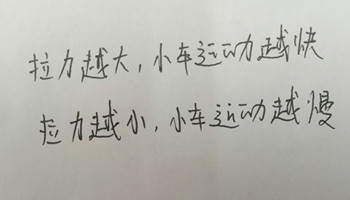 拉力越大，小车运动越快
拉力越小，小车运动越慢